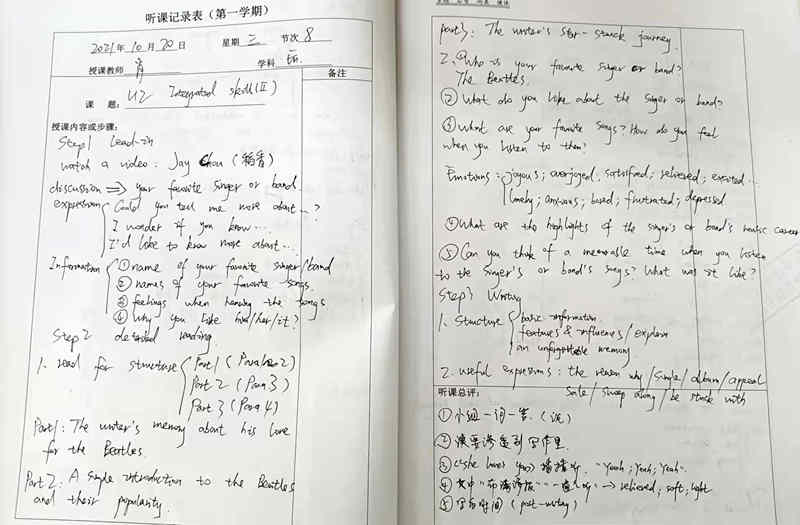 听课记录表（第一学期）
2021年10月20日 星期 三 节次 8
授课教师 学科
课 题： U2 Integrated skill(II)
备注
授课内容或步骤：
Step1 Lead-in
watch a video: Jay Chou (稻香)
discussion ⇒ your favorite singer or band.
expression Could you tell me more about ...?
I wonder if you know...
I'd like to know more about...
Information ① name of your favorite singer/band
② names of your favorite songs.
③ feelings when hearing the songs
④ why you like him/her/it?
Step 2 detailed reading
1. read for structure Part 1 (Para1-2)
Part 2 (Para 3)
Part 3 (Para 4)
Part1: The writer's memory about his love
for the Beatles.
Part 2: A simple introduction to the Beatles
and their popularity.
part3: The writer's star-struck journey.
2. ① Who is your favorite singer or band?
The Beatles.
② What do you like about the singer or band?
③ What are your favorite songs? How do you feel
when you listen to them?
Emotions: joyous; overjoyed; satisfied; relieved; excited...
lonely; anxious; bored; frustrated; depressed
④ What are the highlights of the singer's or band's music career
⑤ Can you think of a memorable time when you listen
to the singer's or band's songs? What was it like?
Step3 Writing
1. Structure basic information
features & influences/explain
an unforgettable memory
2. useful expressions: the reason why/single/album/appeal
sale/sweep along/be stuck with
听课总评：
① 小组一问一答.
② 渗透到写作里.
③ <she loves you> 播播听. "Yeah; Yeah; Yeah"
④ → relieved; soft; light
⑤ 写的时间 (post-writing)